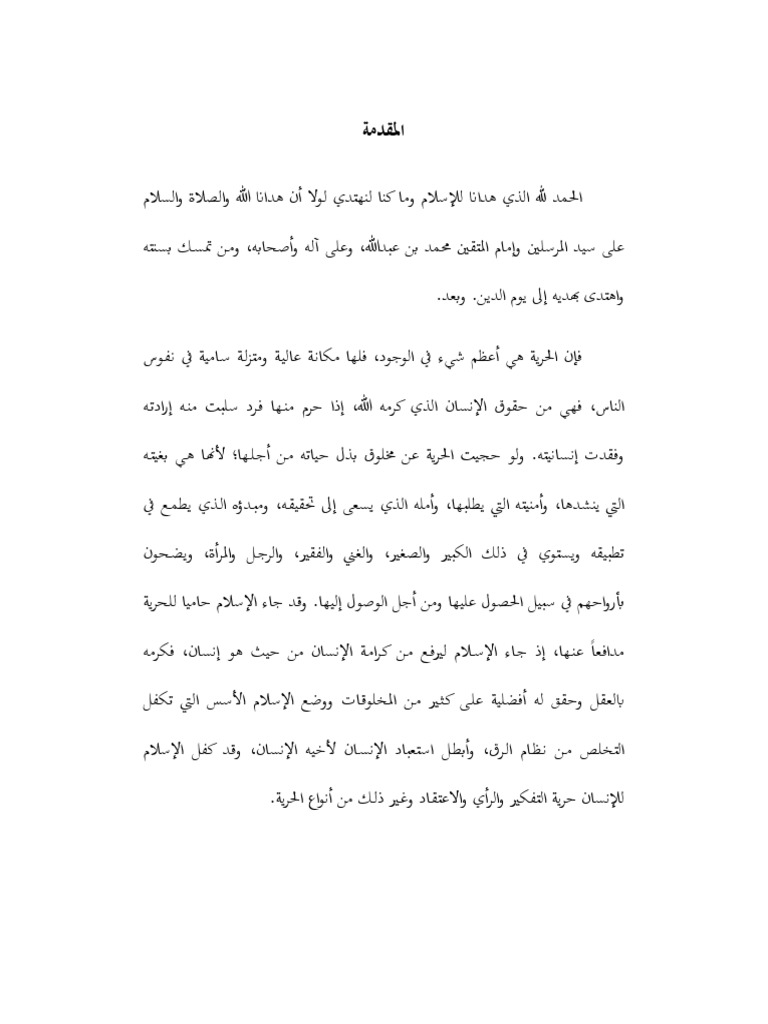 المقدمة
الحمد لله الذي هدانا للإسلام وماكنا لنهتدي لولا أن هدانا الله والصلاة والسلام
على سيد المرسلين وإمام المتقين محمد بن عبدالله، وعلى آله وأصحابه، ومن تمسك بسنته
واهتدى بهديه إلى يوم الدين. وبعد.
فإن الحرية هي أعظم شيء في الوجود، فلها مكانة عالية ومتزلة سامية في نفوس
الناس، فهي من حقوق الإنسان الذي كرمه الله، إذا حرم منها فرد سلبت منه إرادته
وفقدت إنسانيته. ولو حجبت الحرية عن مخلوق بذل حياته من أجلها؛ لأنها هي بغيته
التي ينشدها، وأمنيته التي يطلبها، وأمله الذي يسعى إلى تحقيقه، ومبدؤه الذي يطمع في
تطبيقه ويستوي في ذلك الكبير والصغير، والغني والفقير، والرجل والمرأة، ويضحون
بأرواحهم في سبيل الحصول عليها ومن أجل الوصول إليها. وقد جاء الإسلام حاميا للحرية
مدافعاً عنها، إذ جاء الإسلام ليرفع من كرامة الإنسان من حيث هو إنسان، فكرمه
بالعقل وحقق له أفضلية على كثير من المخلوقات ووضع الإسلام الأسس التي تكفل
التخلص من نظام الرق، وأبطل استعباد الإنسان لأخيه الإنسان، وقد كفل الإسلام
للإنسان حرية التفكير والرأي والاعتقاد وغير ذلك من أنواع الحرية.